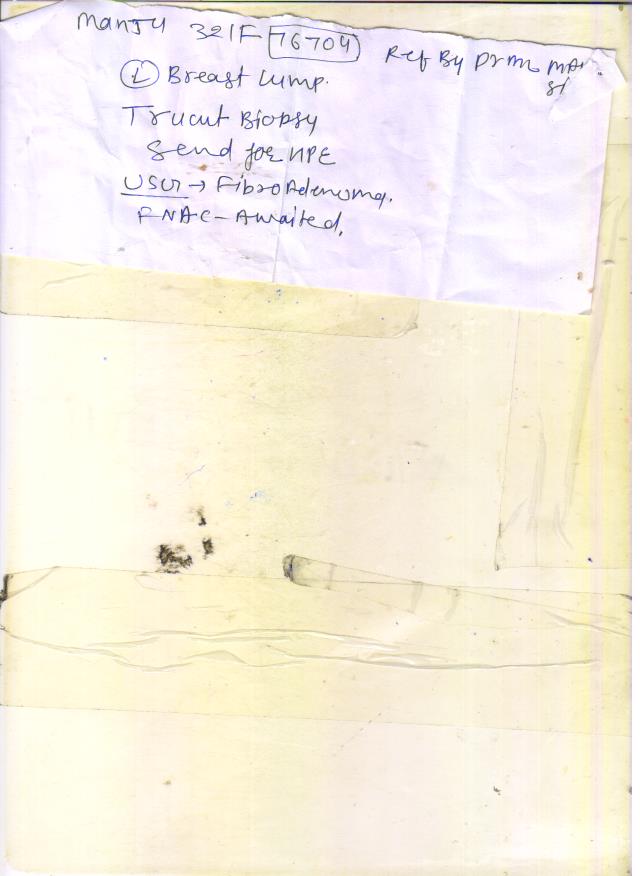 Manju 32/F 76704 Ref By Dr M
(L) Breast lump.
Trucut Biopsy
Send for HPE
USG → FibroAdenoma.
FNAC - Awaited.